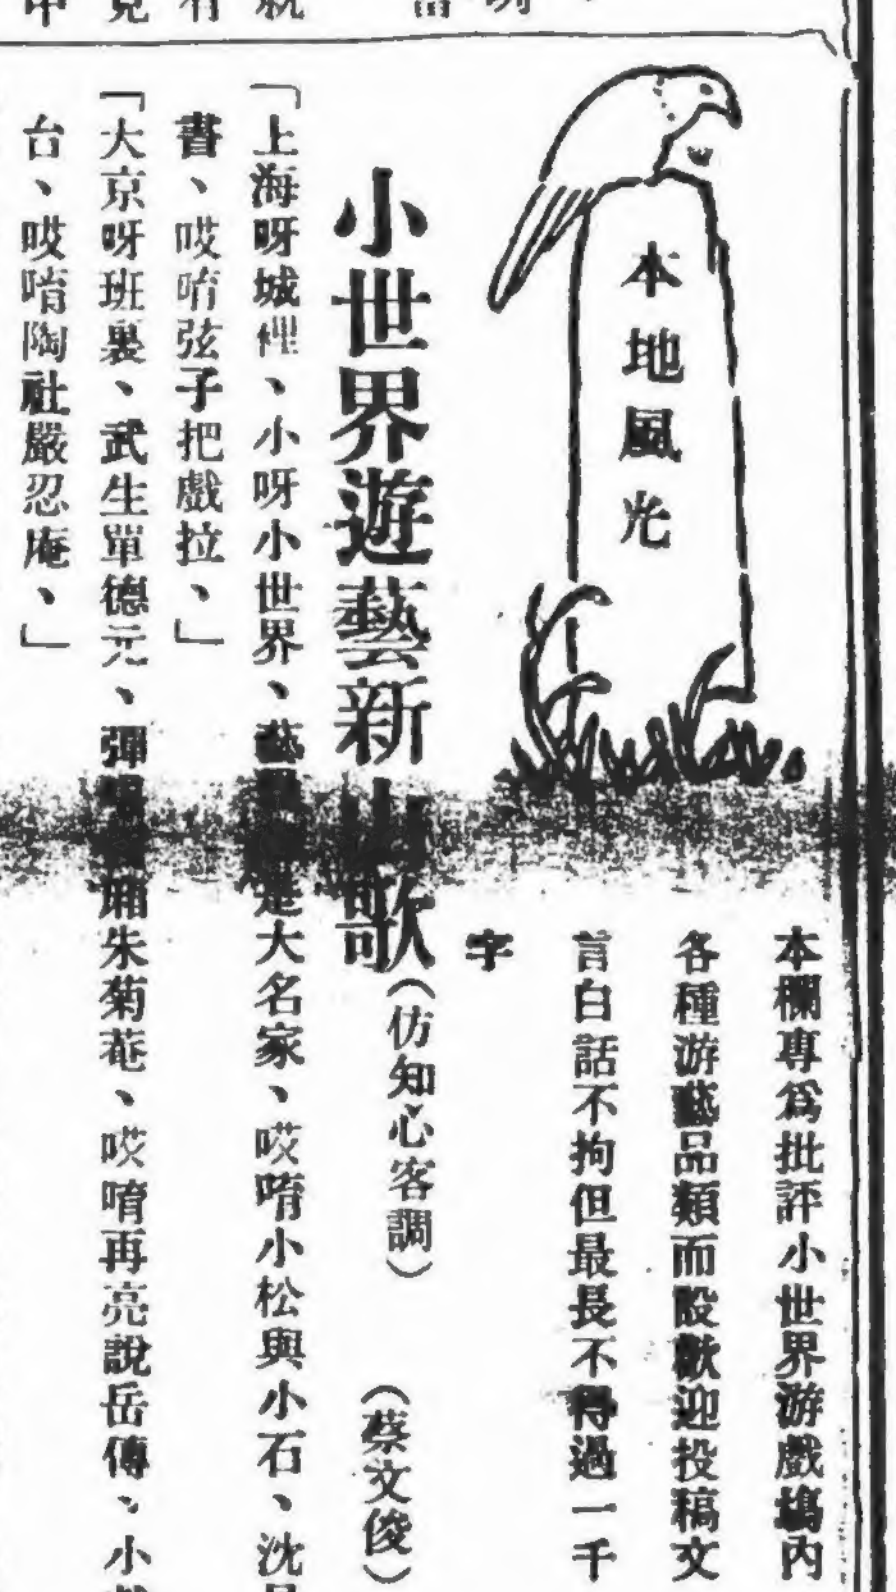 本地風光
本欄專爲批評小世界游戲塲內
各種游藝品類而設歡迎投稿文
言白話不拘但最長不得過一千
字
小世界遊藝新山歌(仿知心客調) (蔡文俊)
「上海呀城裡、小呀小世界、藝是大名家、哎唷小松與小石、沈
書、哎唷弦子把戲拉、」
「大京呀班裏、武生單德元、彈廂朱菊菴、哎唷再亮說岳傳、小
台、哎唷陶社嚴忍庵、」